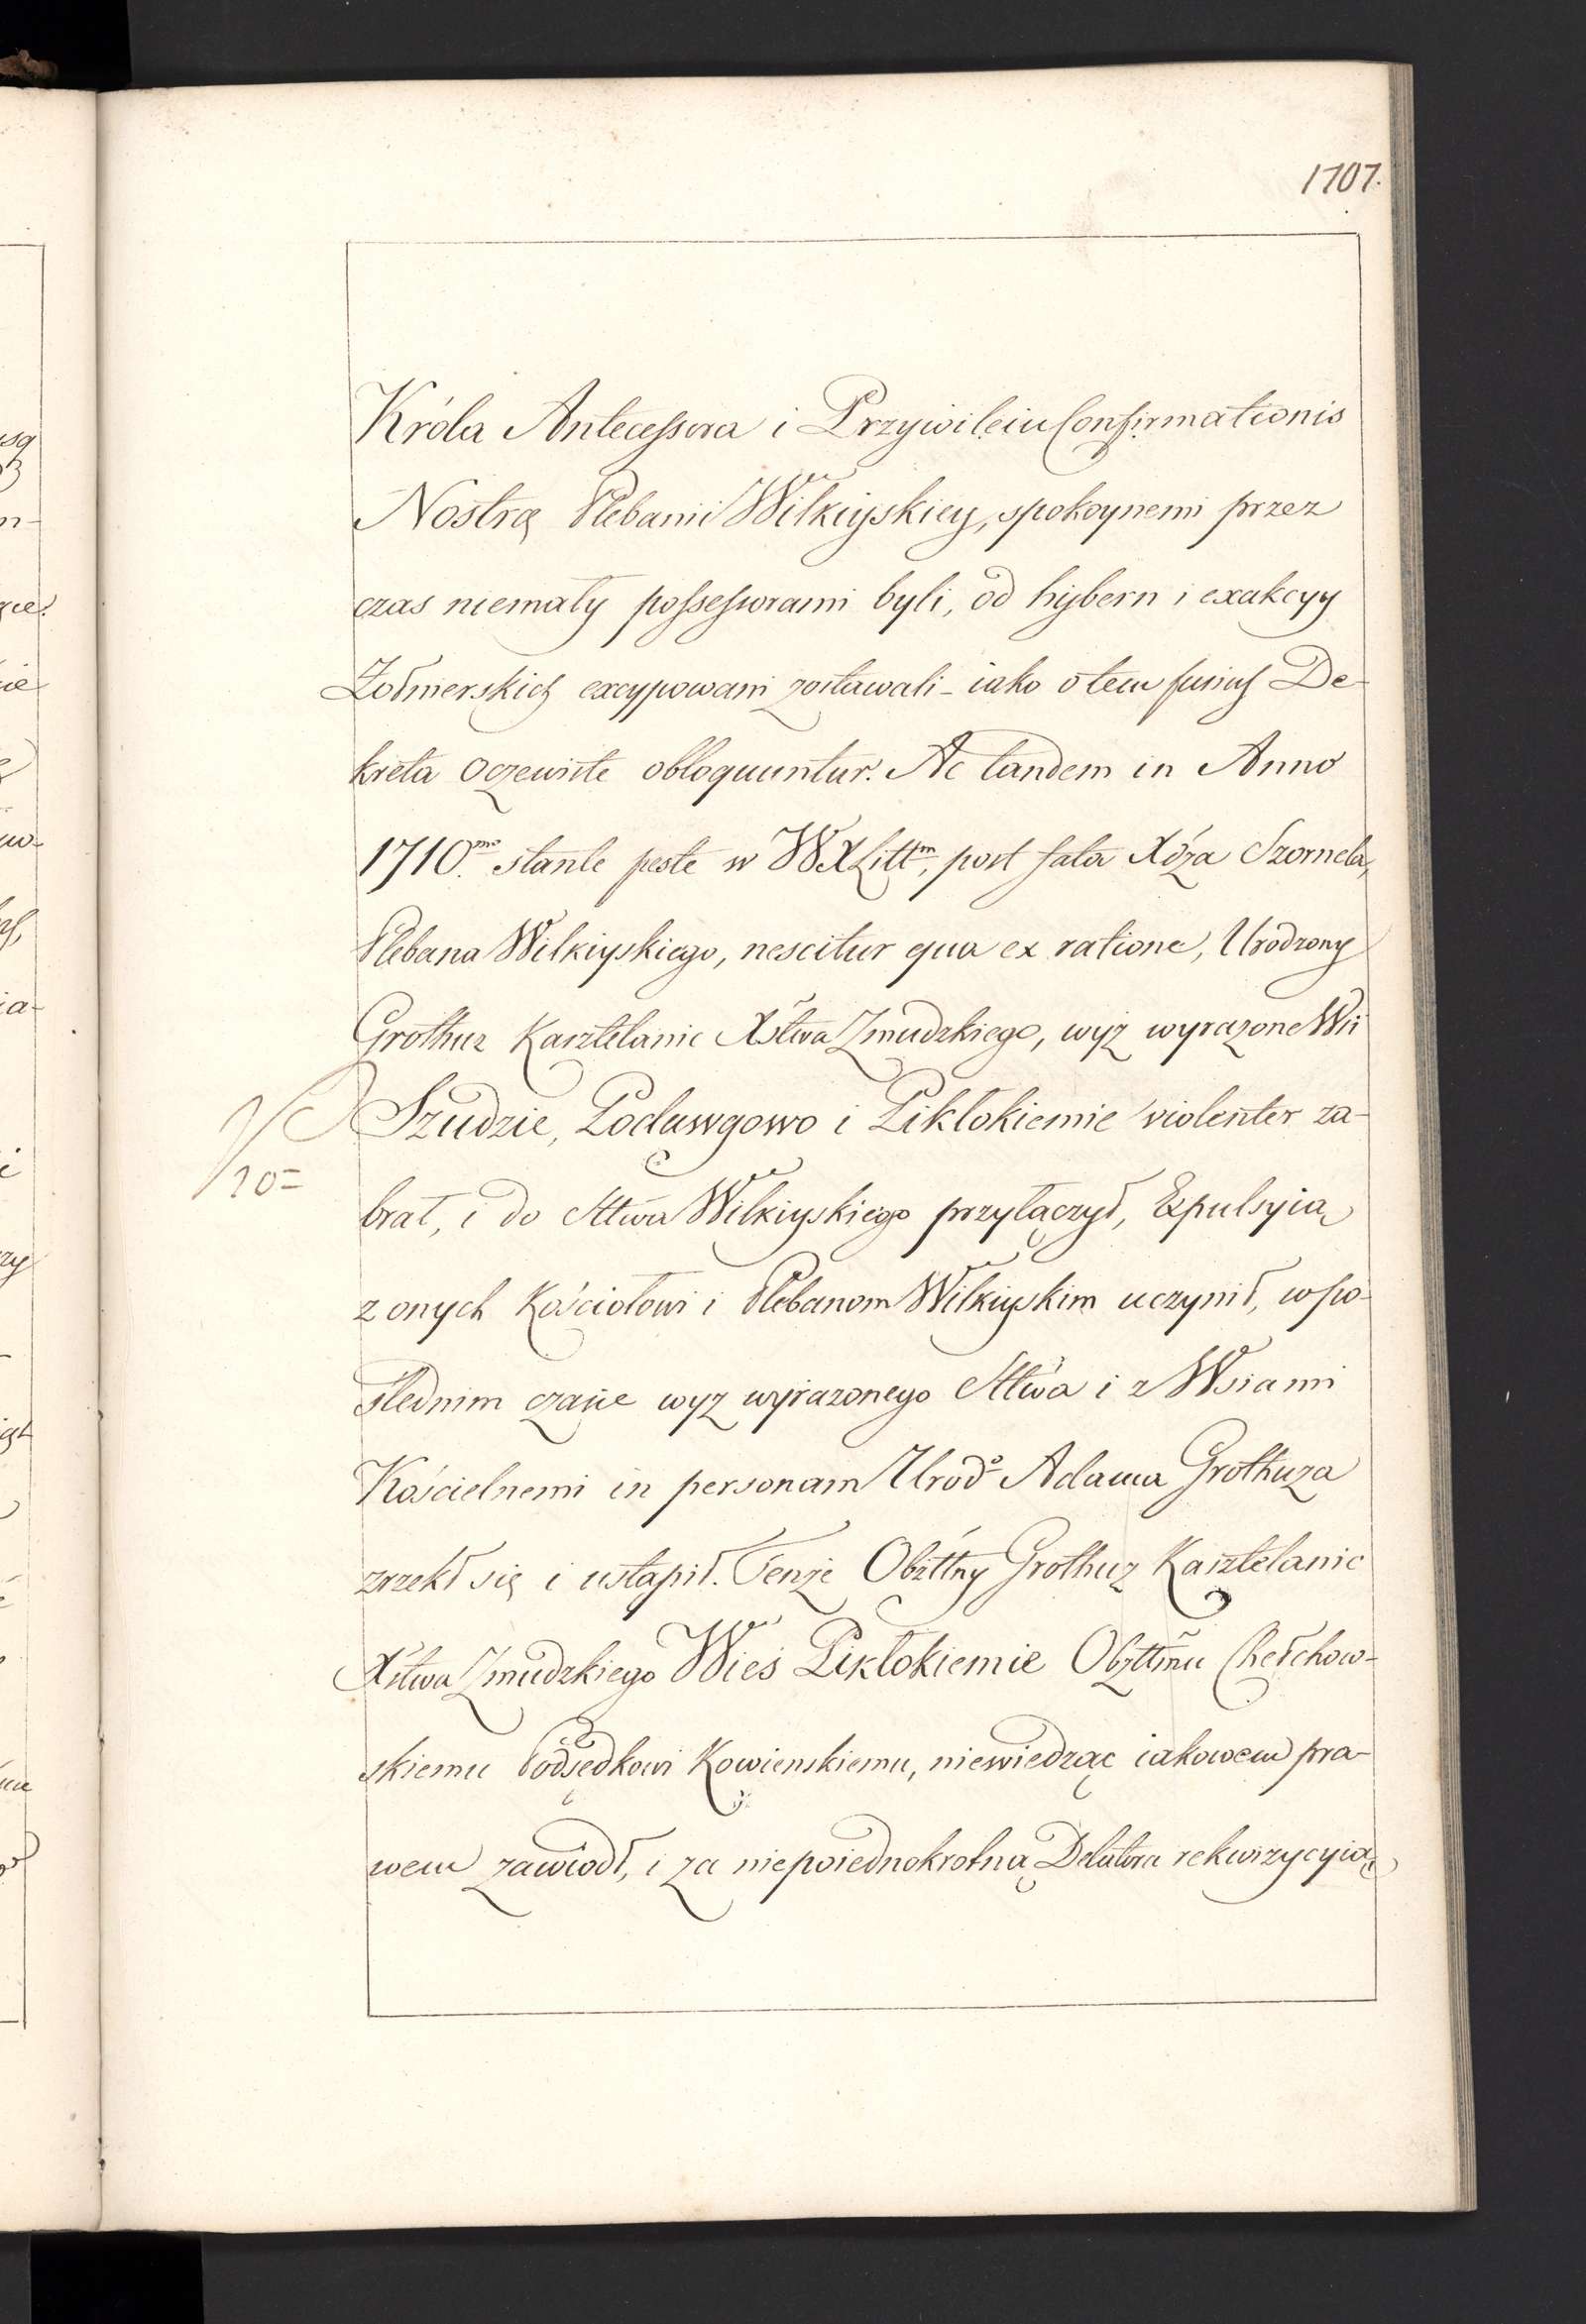 1707.
Króla Antecessora i Przywileiu Confirmationis
Nostrę Plebanii Wilkiyskiey, spokoynemi przez
czas niemały possessorami byli, od hybern i exakcyy
Żołnierskich excypowani zostawali - iako o tem fusius De-
kreta Oczewiste obloquuntur. Ac tandem in Anno
1710.mo stante peste w WXLittm, post fata Xdza Szornela,
Plebana Wilkiyskiego, nescitur qua ex ratione, Urodzony
Grothuz Kasztelanic Xstwa Zmudzkiego, wyż wyrażone Wsi
Szudzie, Podawgowo i Piktokiemie violenter za-
10=
brał, i do Sttwa Wilkiyskiego przyłączył, Expulsyią
z onych Kościołowi i Plebanom Wilkiyskim uczynił, w po-
ślednim czasie wyz wyrazonego Sttwa i z Wsiami
Kościelnemi in personam Urodo Adama Grothuza
zrzekł się i ustąpił. Tenże Obżttny Grothuz Kasztelanic
Xstwa Zmudzkiego Wieś Piktokiemie Obżttmu Chełchow-
skiemu Podsędkowi Kowienskiemu, niewiedząc iakowem pra-
wem zawiodł, i za niepoiednokrotną Delatora rekwizycyią